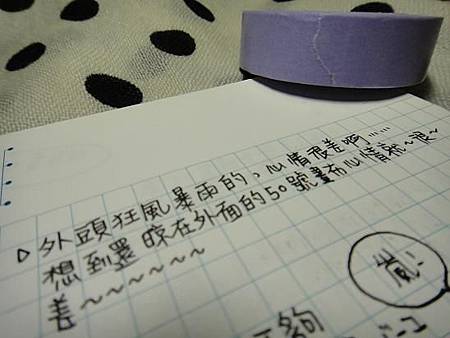 外頭狂風暴雨的，心情很差啊……
想到還晾在外面的50號畫布心情就~很~
差~~~~~~
嵐
夠